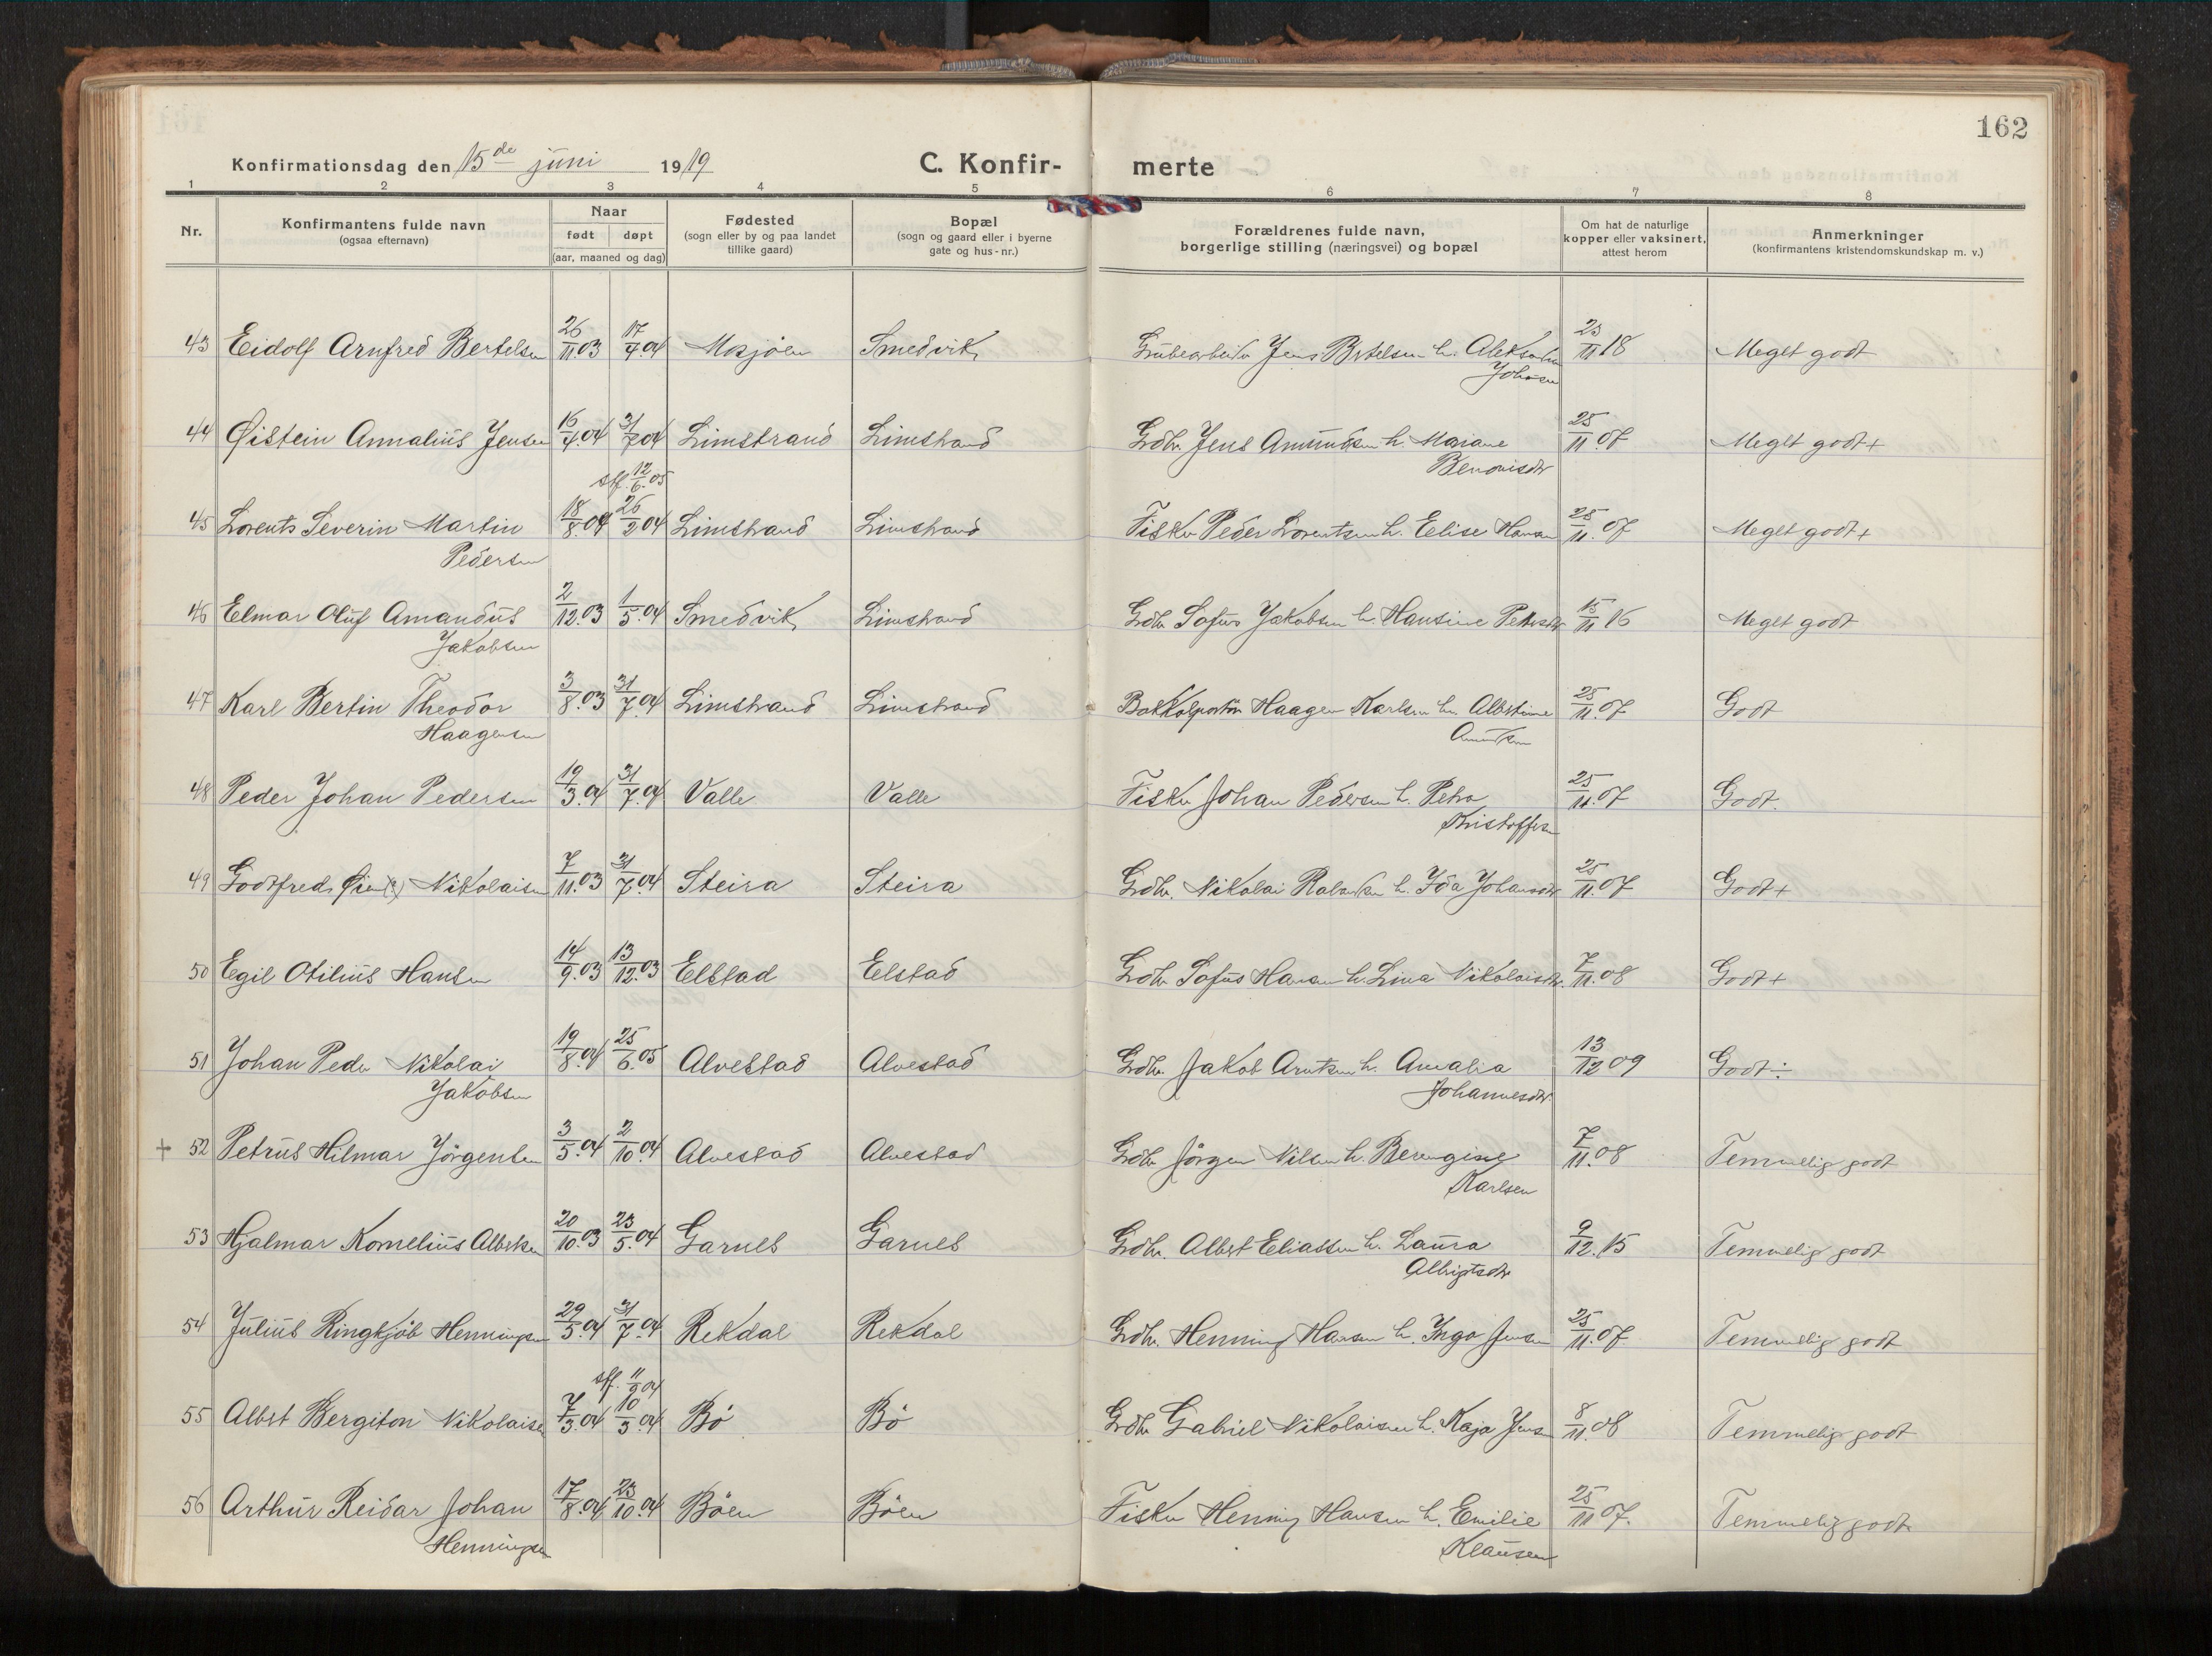 162
Konfirmationsdag den 15de juni 1919
C. Konfir-
merte
1 2 3 4 5 6 7 8
Nr.
Konfirmantens fulde navn
(ogsaa efternavn)
Naar
født døpt
(aar, maaned og dag)
Fødested
(sogn eller by og paa landet
tillike gaard)
Bopæl
(sogn og gaard eller i byerne
gate og hus-nr.)
Forældrenes fulde navn,
borgerlige stilling (næringsvei) og bopæl
Om hat de naturlige
kopper eller vaksinert,
attest herom
Anmerkninger
(konfirmantens kristendomskundskap m. v.)
43 Eidolf Arnfred Bertelsen 26/11.03 17/4.04 Mosjöen Smedvik Grubearbeider Jens Bertelsen h. 23/11 18 Meget godt
Johnsen
44 Øistein Annalius Jensen 16/4.04 31/7.04 Limstrand Limstrand Grdbr. Jens Amundsen h. Mariane 25/11.07 Meget godt+
Benonisdtr
stf. 12/6.05
45 Lorents Severin Martin 18/8.04 26/2 04 Limstrand Limstrand Fisker Peder Lorentsen h. Elise Hansen 25/11.07 Meget godt+
Pedersen
46 Elmar Oluf Amandus 2/12.03 1/5.04 Smedvik Limstrand Grdbr Sofus Jakobsen h. Hansine Petersdtr 15/11 16 Meget godt
Jakobsen
47 Karl Bertin Theodor 3/8.03 31/7.04 Limstrand Limstrand Bokkolportör Haagen Karlsen h. Albertine 25/11.07 Godt
Haagensen Amundsen
48 Peder Johan Pedersen 19/3.04 31/7.04 Valle Valle Fisker Johan Pedersen h. Petra 25/11.07 Godt.
Kristoffersen
49 Godtfred Nikolaisen 7/11.03 31/7.04 Steira Steira Grdbr. Nikolai h. Ida Johansdtr 25/11.07 Godt+
50 Egil Otilius Hansen 14/9.03 13/12.03 Elstad Elstad Grdbr Sofus Hansen h. Lina Nikolaisdtr. 7/11.08 Godt+
51 Johan Peder Nikolai 19/8.04 25/6.05 Alvestad Alvestad Grdbr. Jakob Arntsen h. Amalia 13/12 09 Godt÷
Jakobsen Johannesdtr
+ 52 Petrus Hilmar Jörgensen 3/5.04 2/10.04 Alvestad Alvestad Grdbr Jörgen Nilsen h. Berengine 7/11.08 Temmelig godt
Karlsen
53 Hjalmar Kornelius Albertsen 20/10.03 23/5.04 Garnes Garnes Grdbr. Albert Eliassen h. Laura 9/12.15 Temmelig godt
Albrigtsdtr
54 Julius Ringkjöb Henningsen 29/5.04 31/7.04 Rekdal Rekdal Grdbr. Henning Hansen h. Inga Jensen 25/11.07 Temmelig godt
stf. 11/9 04
55 Albert Bergiton Nikolaisen 7/3.04 10/3.04 Bö Bö Grdbr Gabriel Nikolaisen h. Kaja Jensen 8/11.08 Temmelig godt
56 Arthur Reidar Johan 17/8.04 23/10.04 Böen Böen Fisker Henning Hansen h. Emilie 25/11 07. Temmelig godt
Henningsen Klausen